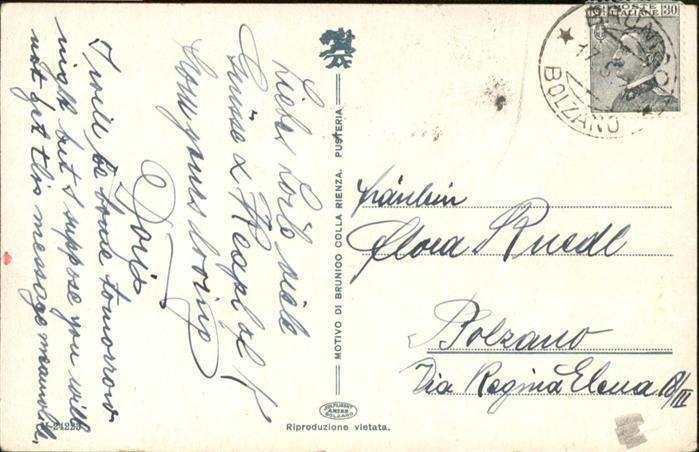 POSTE ITALIANE 30
BOLZANO
Liebs Lorle viele
Grüsse &
from yours loving
Doris
I will be home tomorrow
night but I suppose you will
not get this message meanwhile
MOTIVO DI BRUNICO COLLA RIENZA. PUSTERIA
Fräulein
Flora Ruedl
Bolzano
Via Regina Elena 18/III
BOLZANO
Riproduzione vietata.
24223